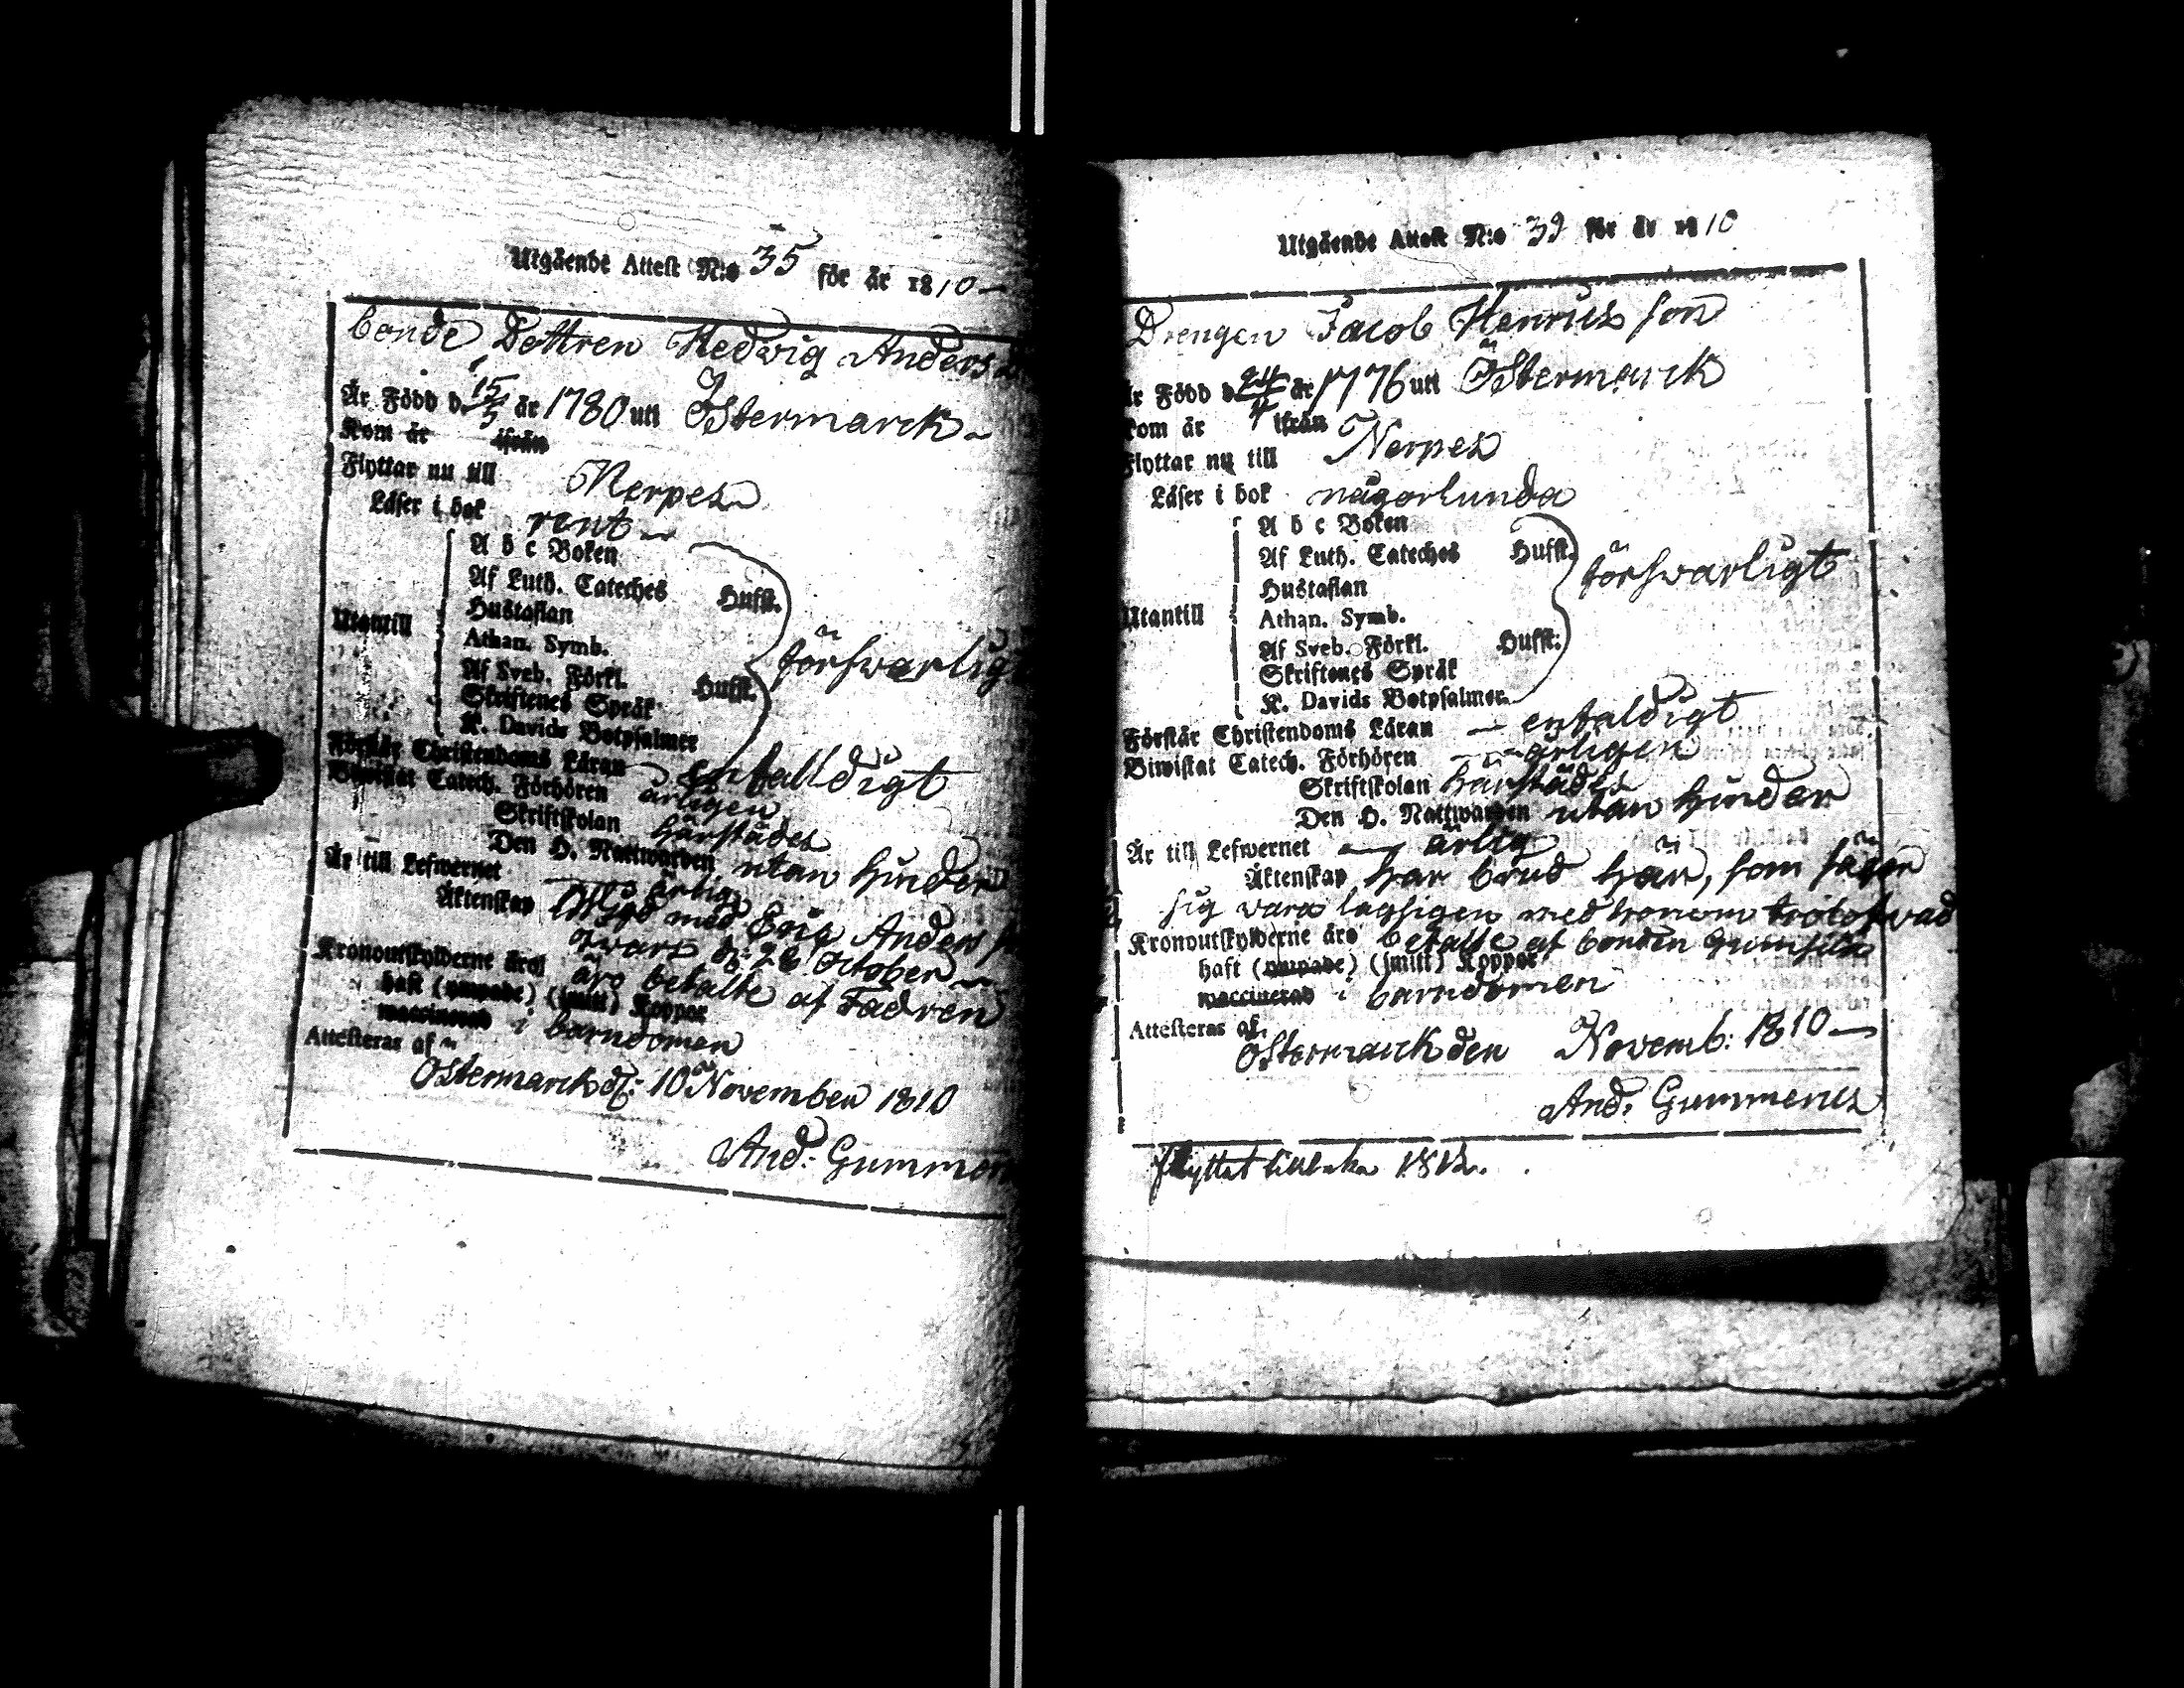 Utgående Attest N:o 35 för år 1810
Bonde Dottren Hedvig Anders
Är Född d 15/5 år 1780 uti Östermarck
Kom år ifrån
Flyttar nu till Nerpes
Läser i bok rent
Utantill
A b c Boken
Af Luth. Cateches Hufst.
Hustaflan
Athan. Symb.
Af Sveb. Förkl. Hufst.
Skriftenes Språk
K. Davids Botpsalmer
försvarlig
Förstår Christendoms Läran enfalldigt
Biwistat Catech. Förhören årligen
Skriftskolan härstädes
Den H. Nattwarden utan hinder
Är till Lefwernet ärlig
Äktenskap med Eric Anders
d: 26 October
Kronoutskylderne äro äro betalte af Fadren
haft (ympade) (smitt) Koppor
vaccinerad i barndomen
Attesteras af
Östermarck d: 10 November 1810
And: Gummer
Utgående Attest N:o 39 för år 1810
Drengen Jacob Henrics son
Är Född d 24/4 år 1776 uti Östermarck
Kom år ifrån
Flyttar nu till Nerpes
Läser i bok någorlunda
Utantill
A b c Boken
Af Luth. Cateches Hufst.
Hustaflan
Athan. Symb.
Af Sveb. Förkl. Hufst.
Skriftenes Språk
K. Davids Botpsalmer
försvarligt
Förstår Christendoms Läran enfaldigt
Biwistat Catech. Förhören årligen
Skriftskolan härstädes
Den H. Nattwarden utan hinder
Är till Lefwernet ärlig
Äktenskap har brud här, som säger
sig vara lagligen med honom trolofvad
Kronoutskylderne äro betalte af bonden
haft (ympade) (smitt) Koppor
vaccinerad i barndomen
Attesteras af
Östermarck den Novemb: 1810
And: Gummerus
flyttat tillbaka 1812.